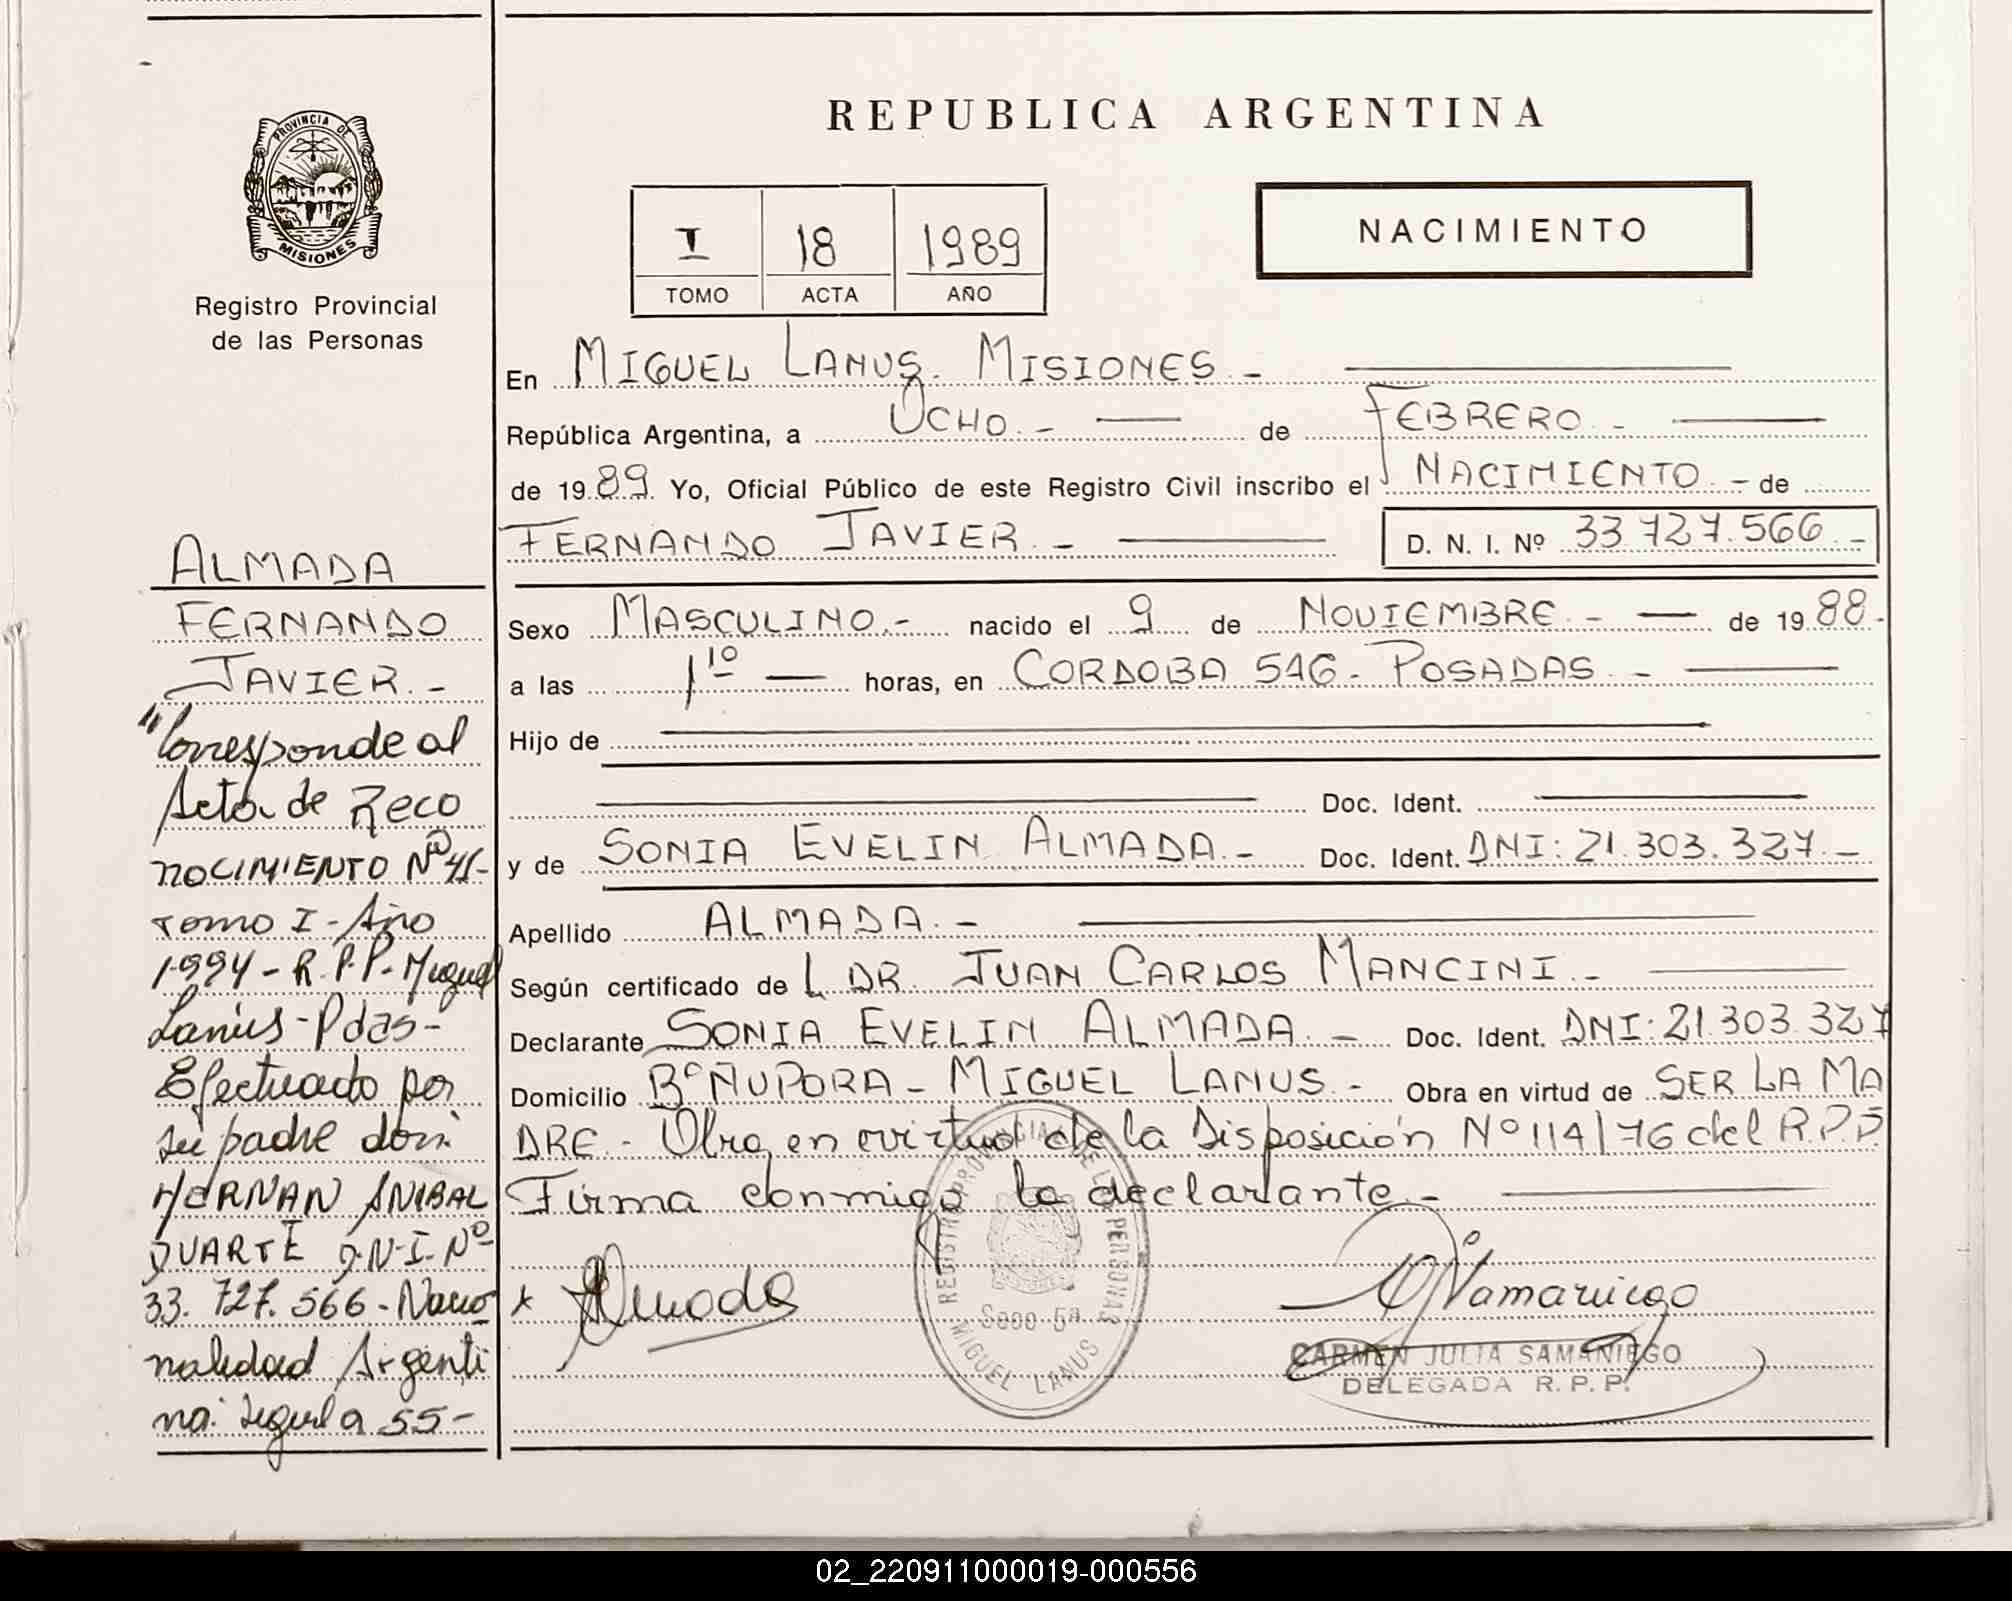 PROVINCIA DE
MISIONES
Registro Provincial
de las Personas
ALMADA
FERNANDO
JAVIER.-
"Corresponde al
Acta de Reco
NOCIMIENTO Nº 41-
Tomo I - Año
1994 - R.P.P. Miguel
Lanús - Pdas -
Efectuado por
su padre don:
HERNAN ANIBAL
DUARTE D.N.I. Nº
33.727.566 - Nacio
nalidad Argenti
na: Seguel a 55 -
REPUBLICA ARGENTINA
I 18 1989
TOMO ACTA AÑO
NACIMIENTO
En MIGUEL LANUS. MISIONES.-
República Argentina, a OCHO.- de FEBRERO.-
de 1989. Yo, Oficial Público de este Registro Civil inscribo el NACIMIENTO.- de
FERNANDO JAVIER.- D. N. I. Nº 33.727.566.-
Sexo MASCULINO.- nacido el 9 de NOVIEMBRE.- de 1988.-
a las 1 10 horas, en CORDOBA 546.- POSADAS.-
Hijo de
Doc. Ident.
y de SONIA EVELIN ALMADA.- Doc. Ident. DNI: 21.303.327.-
Apellido ALMADA.-
Según certificado de L DR. JUAN CARLOS MANCINI.-
Declarante SONIA EVELIN ALMADA.- Doc. Ident. DNI: 21.303.327
Domicilio Bº ÑUPORA - MIGUEL LANUS.- Obra en virtud de SER LA MA
DRE.- Obra en virtud de la Disposición Nº 114/76 del R.P.P.
Firma conmigo la declarante.-
x Almada
REGISTRO PROVINCIAL DE LAS PERSONAS
Secc. 5ª
MIGUEL LANUS
Samaniego
CARMEN JULIA SAMANIEGO
DELEGADA R.P.P.
02_220911000019-000556